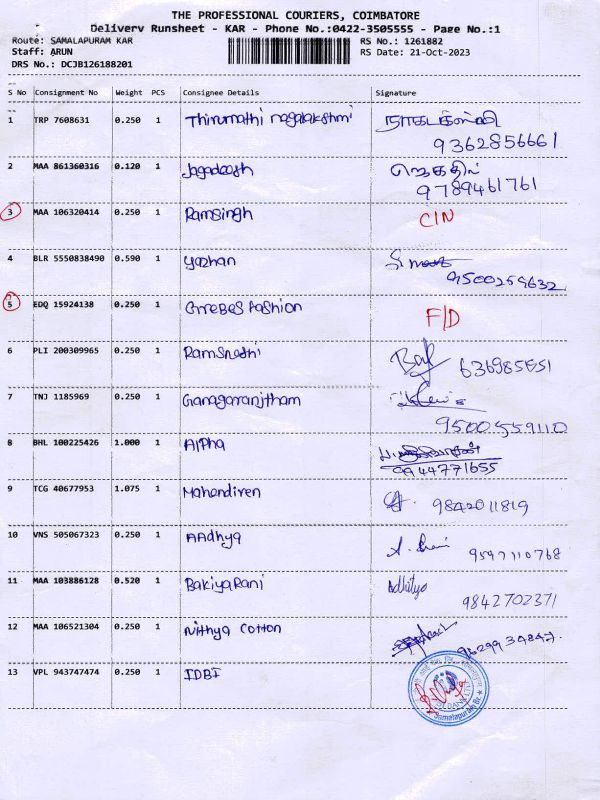 THE PROFESSIONAL COURIERS, COIMBATORE
Delivery Runsheet - KAR - Phone No.:0422-3505555 - Page No.:1
Route: SAMALAPURAM KAR
RS No.: 1261882
Staff: ARUN
RS Date: 21-Oct-2023
DRS No.: DCJB126188201
S No Consignment No Weight PCS Consignee Details Signature
1 TRP 7608631 0.250 1 Thirumathi nagalakshmi
9362856661
2 MAA 861360316 0.120 1 Jagadeesh ஜெகதீஸ்
9789461761
3 MAA 106320414 0.250 1 Ramsingh C/N
4 BLR 5550838490 0.590 1 yazhan
9500259632
5 EDQ 15924138 0.250 1 Fashion F/D
6 PLI 200309965 0.250 1 636985551
7 TNJ 1185969 0.250 1 Ganagaranjtham
9500559110
8 BHL 100225426 1.000 1 Alpha
9944771655
9 TCG 40677953 1.075 1 Mahendiren 9842011819
10 VNS 505067323 0.250 1 AAdhya
9597110768
11 MAA 103886128 0.520 1 BakiyaRani
9842702371
12 MAA 106521304 0.250 1 Nithya cotton
13 VPL 943747474 0.250 1 IDBI
Samalapuram Br.